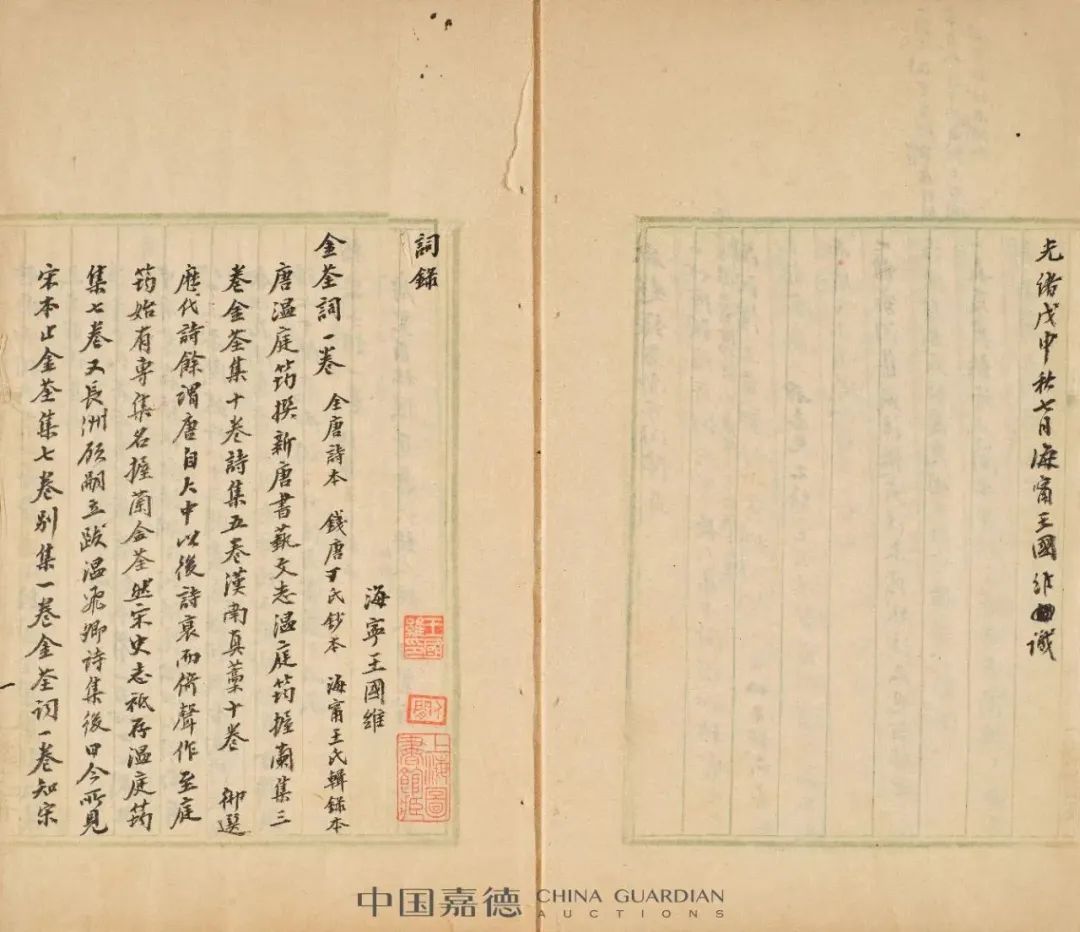 光緒戊申秋七月海甯王國維識
詞錄
海寧王國維
金荃詞一卷 全唐詩本 錢唐丁氏鈔本 海甯王氏輯錄本
唐溫庭筠撰新唐書藝文志溫庭筠握蘭集三
卷金荃集十卷詩集五卷漢南真藁十卷 御選
歷代詩餘謂唐自大中以後詩衰而倚聲作至庭
筠始有專集名握蘭金荃然宋史志祗存溫庭筠
集七卷又長洲顧嗣立跋溫飛卿詩集後曰今所見
宋本止金荃集七卷別集一卷金荃詞一卷知宋
王國維印
上海圖書館
中国嘉德 CHINA GUARDIAN
AUCTIONS